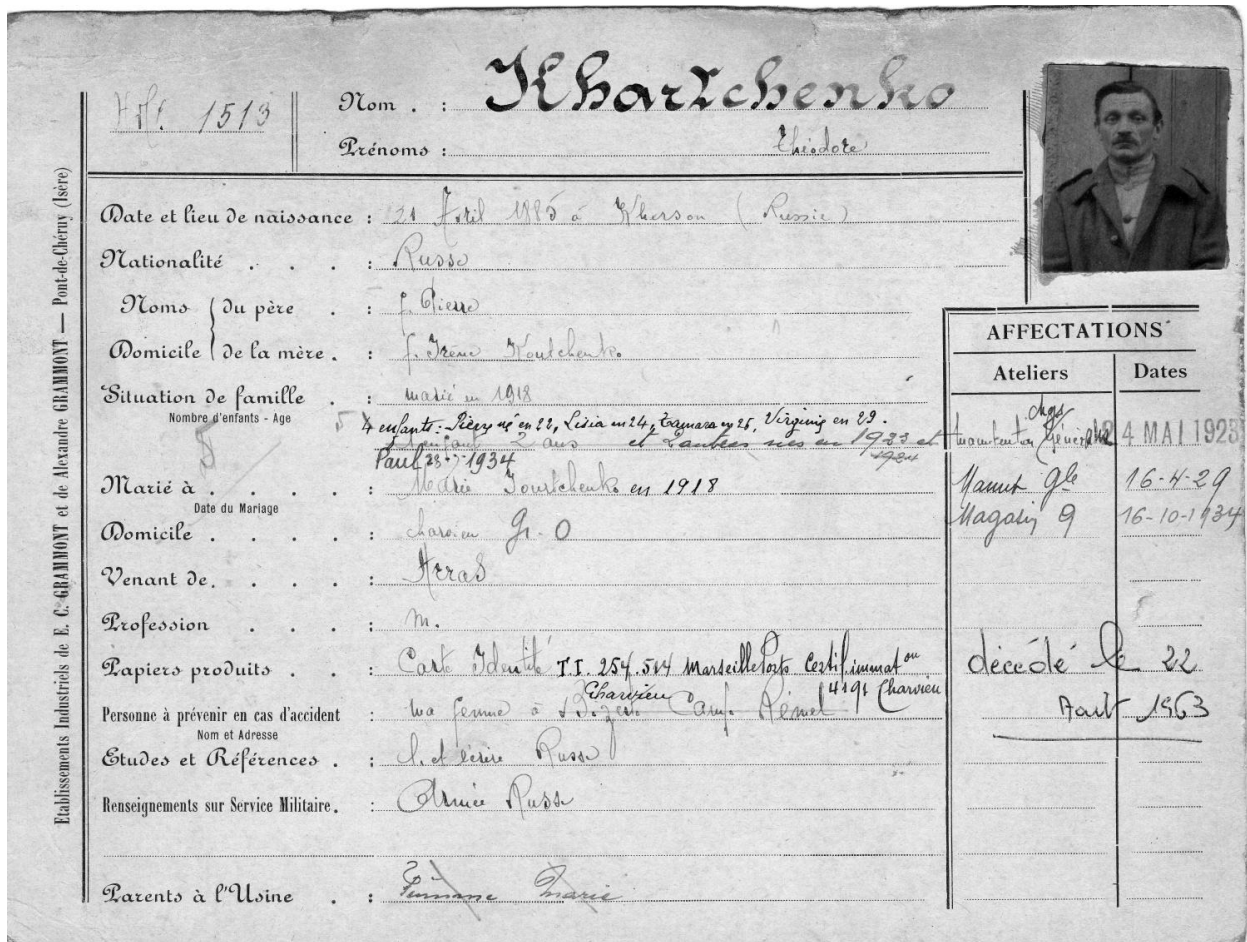 1513
Nom . : Khartchenko
Prénoms : Théodore
Etablissements Industriels de E. C. GRAMMONT et de Alexandre GRAMMONT — Pont-de-Chéruy (Isère)
Date et lieu de naissance : 21 Avril 1885 à Kherson (Russie)
Nationalité . . . : Russe
Noms du père . : f. Pierre
Domicile de la mère . : f. Irène
Situation de famille . : marié en 1918
Nombre d'enfants - Age
5
5 4 enfants : Pierre né en 22, Lisia en 24, Tamara en 26, Virginie en 29.
2 ans et 2 autres nés en 1923 et 1924
Paul 1934
Marié à . . . . : Marie Iourtchenko en 1918
Date du Mariage
Domicile . . . . : charvieu Gr. O
Venant de. . . . : Arras
Profession . . . : m.
Papiers produits . . : Carte Identité T.I. 257.514 Marseille Ports Certif immat on
4191 Charvieu
Personne à prévenir en cas d'accident : ma femme à Charvieu Camp
Nom et Adresse
Etudes et Références . : l. et écrire Russe
Renseignements sur Service Militaire. : Armée Russe
Parents à l'Usine . : Femme Marie
AFFECTATIONS
Ateliers Dates
manutention Générale 24 MAI 1923
Manut Gle 16-4-29
Magasin 9 16-10-1934
décédé le 22
Aout 1963